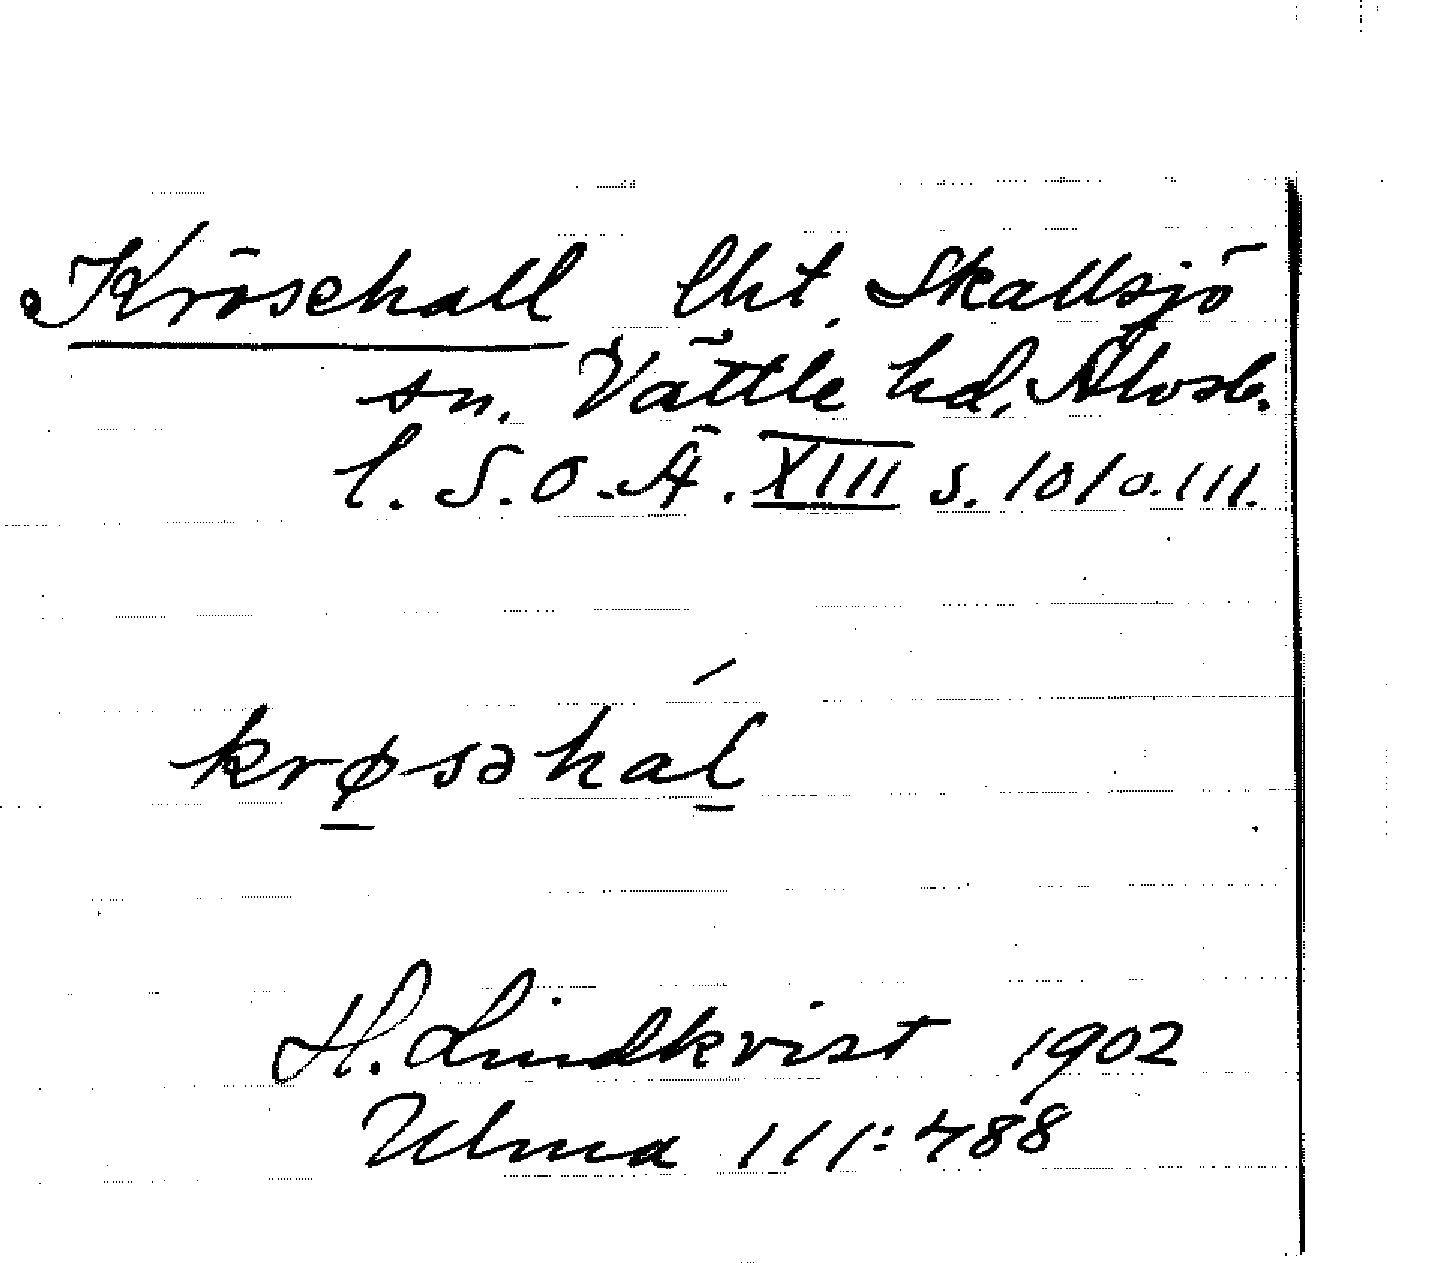 Krösehall lht. Skallsjö
sn. Vättle hd, Älvsb.
l. S.O.Ä. XIII s. 101 o. 111.
krø̱səhaḻ
H. Lindkvist 1902
Ulma 111:488